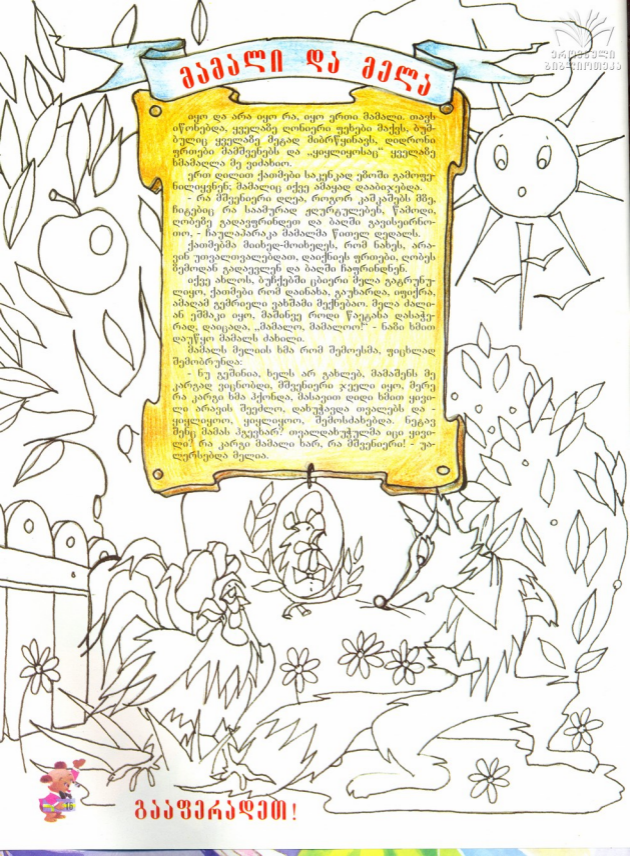 ეროვნული
ბიბლიოთეკა
მამალი და მელა
იყო და არა იყო რა, იყო ერთი მამალი. თავს
იწონებდა, ყველაზე ღონიერი ფეხები მაქვს, ბუმ-
ბულიც ყველაზე მეტად მიბრწყინავს, დიდრონი
ფრთები მამშვენებს და „ყიყლიყოსაც" ყველაზე
ხმამაღლა მე ვიძახიო.
ერთ დილით ქათმები საკენკად ეზოში გამოფე-
ნილიყვნენ; მამალიც იქვე ამაყად დააბიჯებდა.
- რა მშვენიერი დღეა, როგორ კაშკაშებს მზე,
ჩიტებიც რა საამურად ჟღურტულებენ, წამოდი,
ღობეზე გადავფრინდეთ და ბაღში გავისეირნო-
თო, - ჩაულაპარაკა მამალმა წითელ დედალს.
ქათმებმა მიიხედ-მოიხედეს, რომ ნახეს, არა-
ვინ უთვალთვალებდათ, დაიქნიეს ფრთები, ღობეს
ზემოდან გადაევლენ და ბაღში ჩაფრინდნენ.
იქვე ახლოს, ბუჩქებში ცბიერი მელა გატრუნუ-
ლიყო, ქათმები რომ დაინახა, გაუხარდა, იფიქრა,
ამაღამ გემრიელი ვახშამი მექნებაო. მელა ძალი-
ან ეშმაკი იყო, მაშინვე როდი წაეტანა დასაჭე-
რად, დაიცადა, „მამალო, მამალოო!" - ნაზი ხმით
დაუწყო მამალს ძახილი.
მამალს მელიის ხმა რომ შემოესმა, ფიცხლად
შემობრუნდა:
- ნუ გეშინია, ხელს არ გახლებ, მამაშენს მე
კარგად ვიცნობდი, მშვენიერი ჯეელი იყო, მერე
რა კარგი ხმა ჰქონდა, მასავით დიდი ხმით ყივი-
ლი არავის შეეძლო, დახუჭავდა თვალებს და -
ყიყლიყოო, ყიყლიყოო, შემოსძახებდა. ნეტავ
შენც მამას ჰგევხარ? თვალდახუჭულმა იცი ყივი-
ლი? რა კარგი მამალი ხარ, რა მშვენიერი! - ეა-
ლერსებდა მელია.
გააფერადეთ!